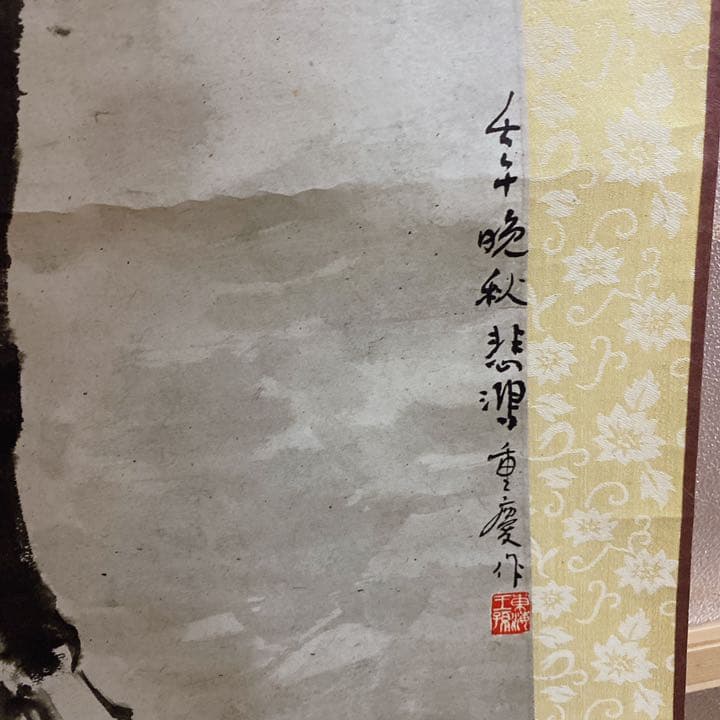 壬午晚秋悲鴻重慶作
東海
王孫